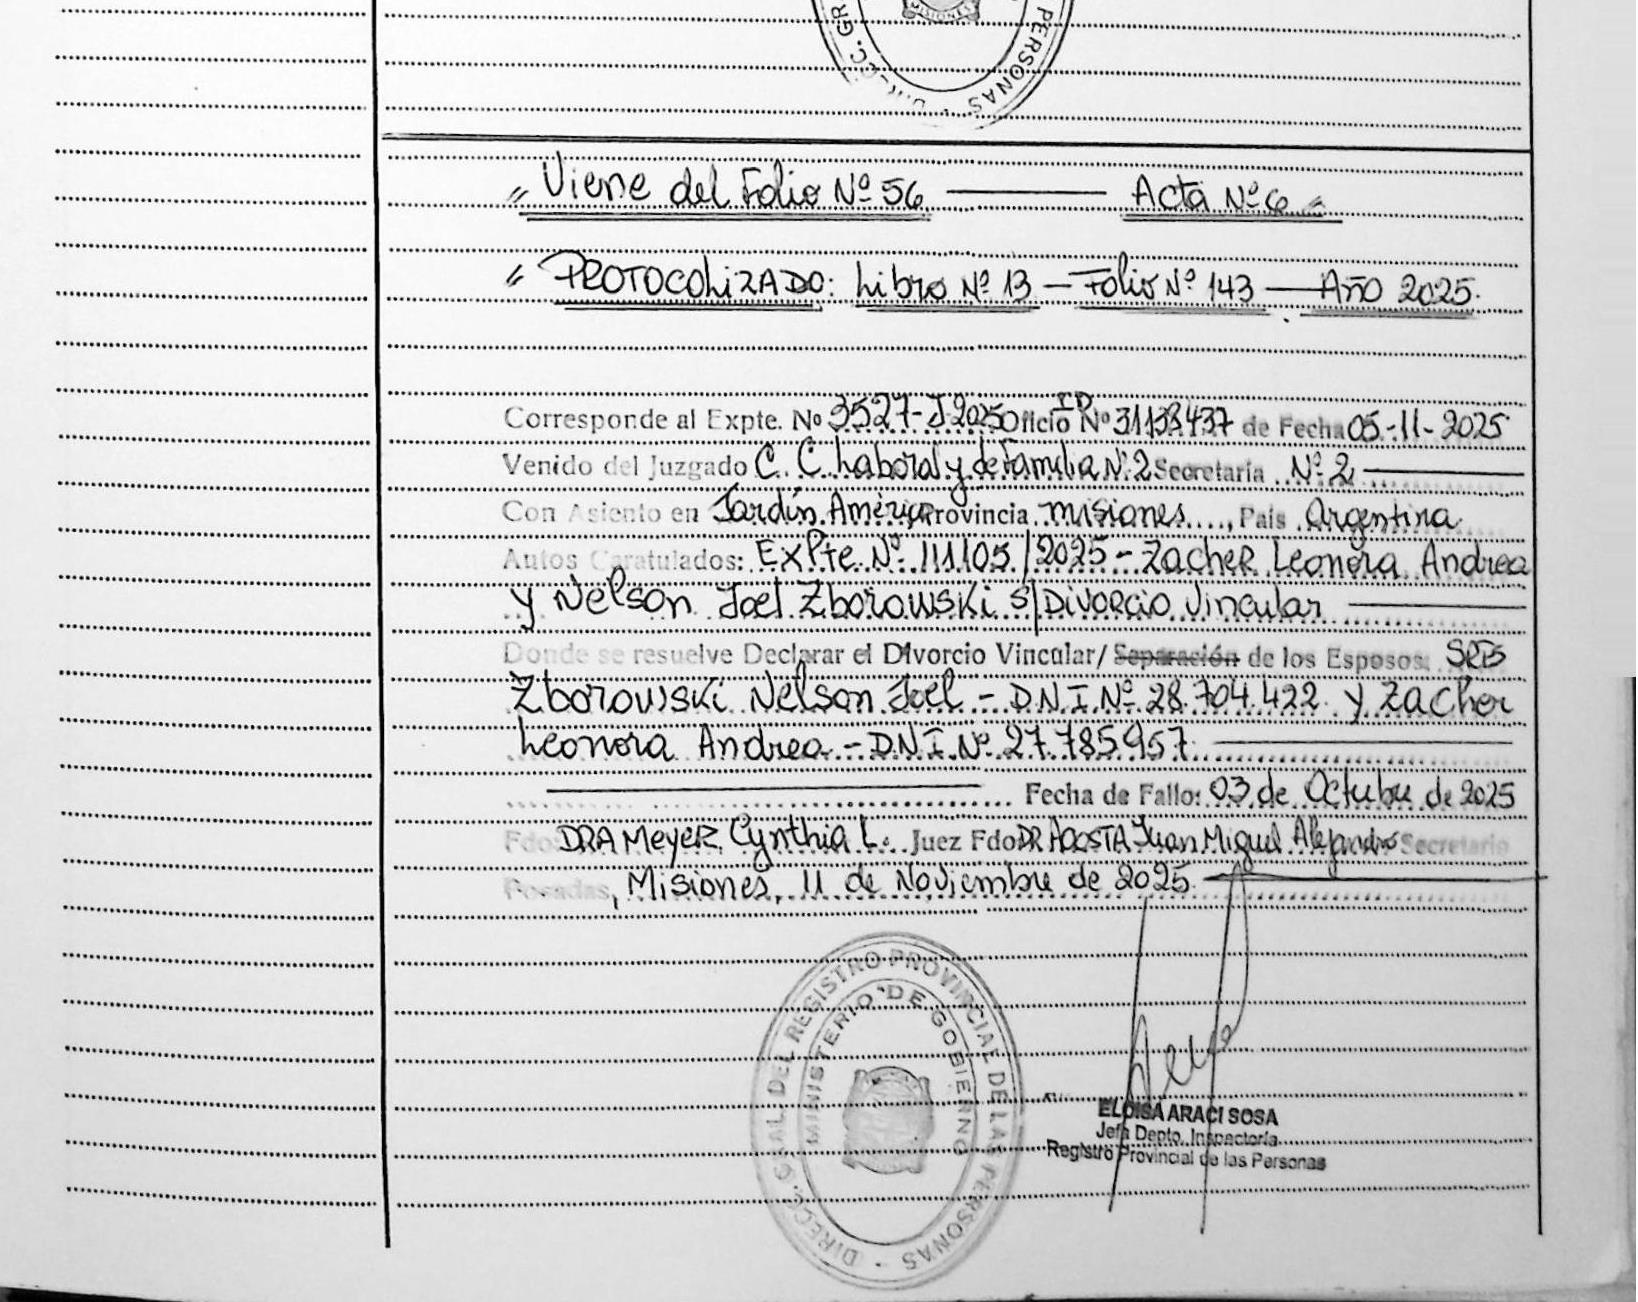 MISIONES
PERSONAS
" Viene del Folio Nº 56 ——— Acta Nº 6 "
" PROTOCOLIZADO: Libro Nº 13 — Folio Nº 143 — Año 2025.
Corresponde al Expte. Nº 3527-J.2025 Oficio ID Nº 31138437 de Fecha 05-11-2025
Venido del Juzgado C. C. Laboral y de Familia Nº 2 Secretaría Nº 2
Con Asiento en Jardín América, Provincia Misiones, País Argentina
Autos Caratulados: ExPte. Nº 111105/2025 - Zacher Leonora Andrea
y Nelson Joel Zborowski S/Divorcio Vincular
Donde se resuelve Declarar el Divorcio Vincular/ Separación de los Esposos: SRES
Zborowski Nelson Joel - D.N.I. Nº 28.704.422 y Zacher
Leonora Andrea - D.N.I. Nº 27.785.957
Fecha de Fallo: 03 de Octubre de 2025
Fdo: DRA Meyer Cynthia L. Juez Fdo DR ACOSTA Juan Miguel Alejandro Secretario
Posadas, Misiones, 11 de Noviembre de 2025.
DIRECC. GRAL. DEL REGISTRO PROVINCIAL DE LAS PERSONAS
MINISTERIO DE GOBIERNO
ELOISA ARACI SOSA
Jefa Depto. Inspectoría
Registro Provincial de las Personas